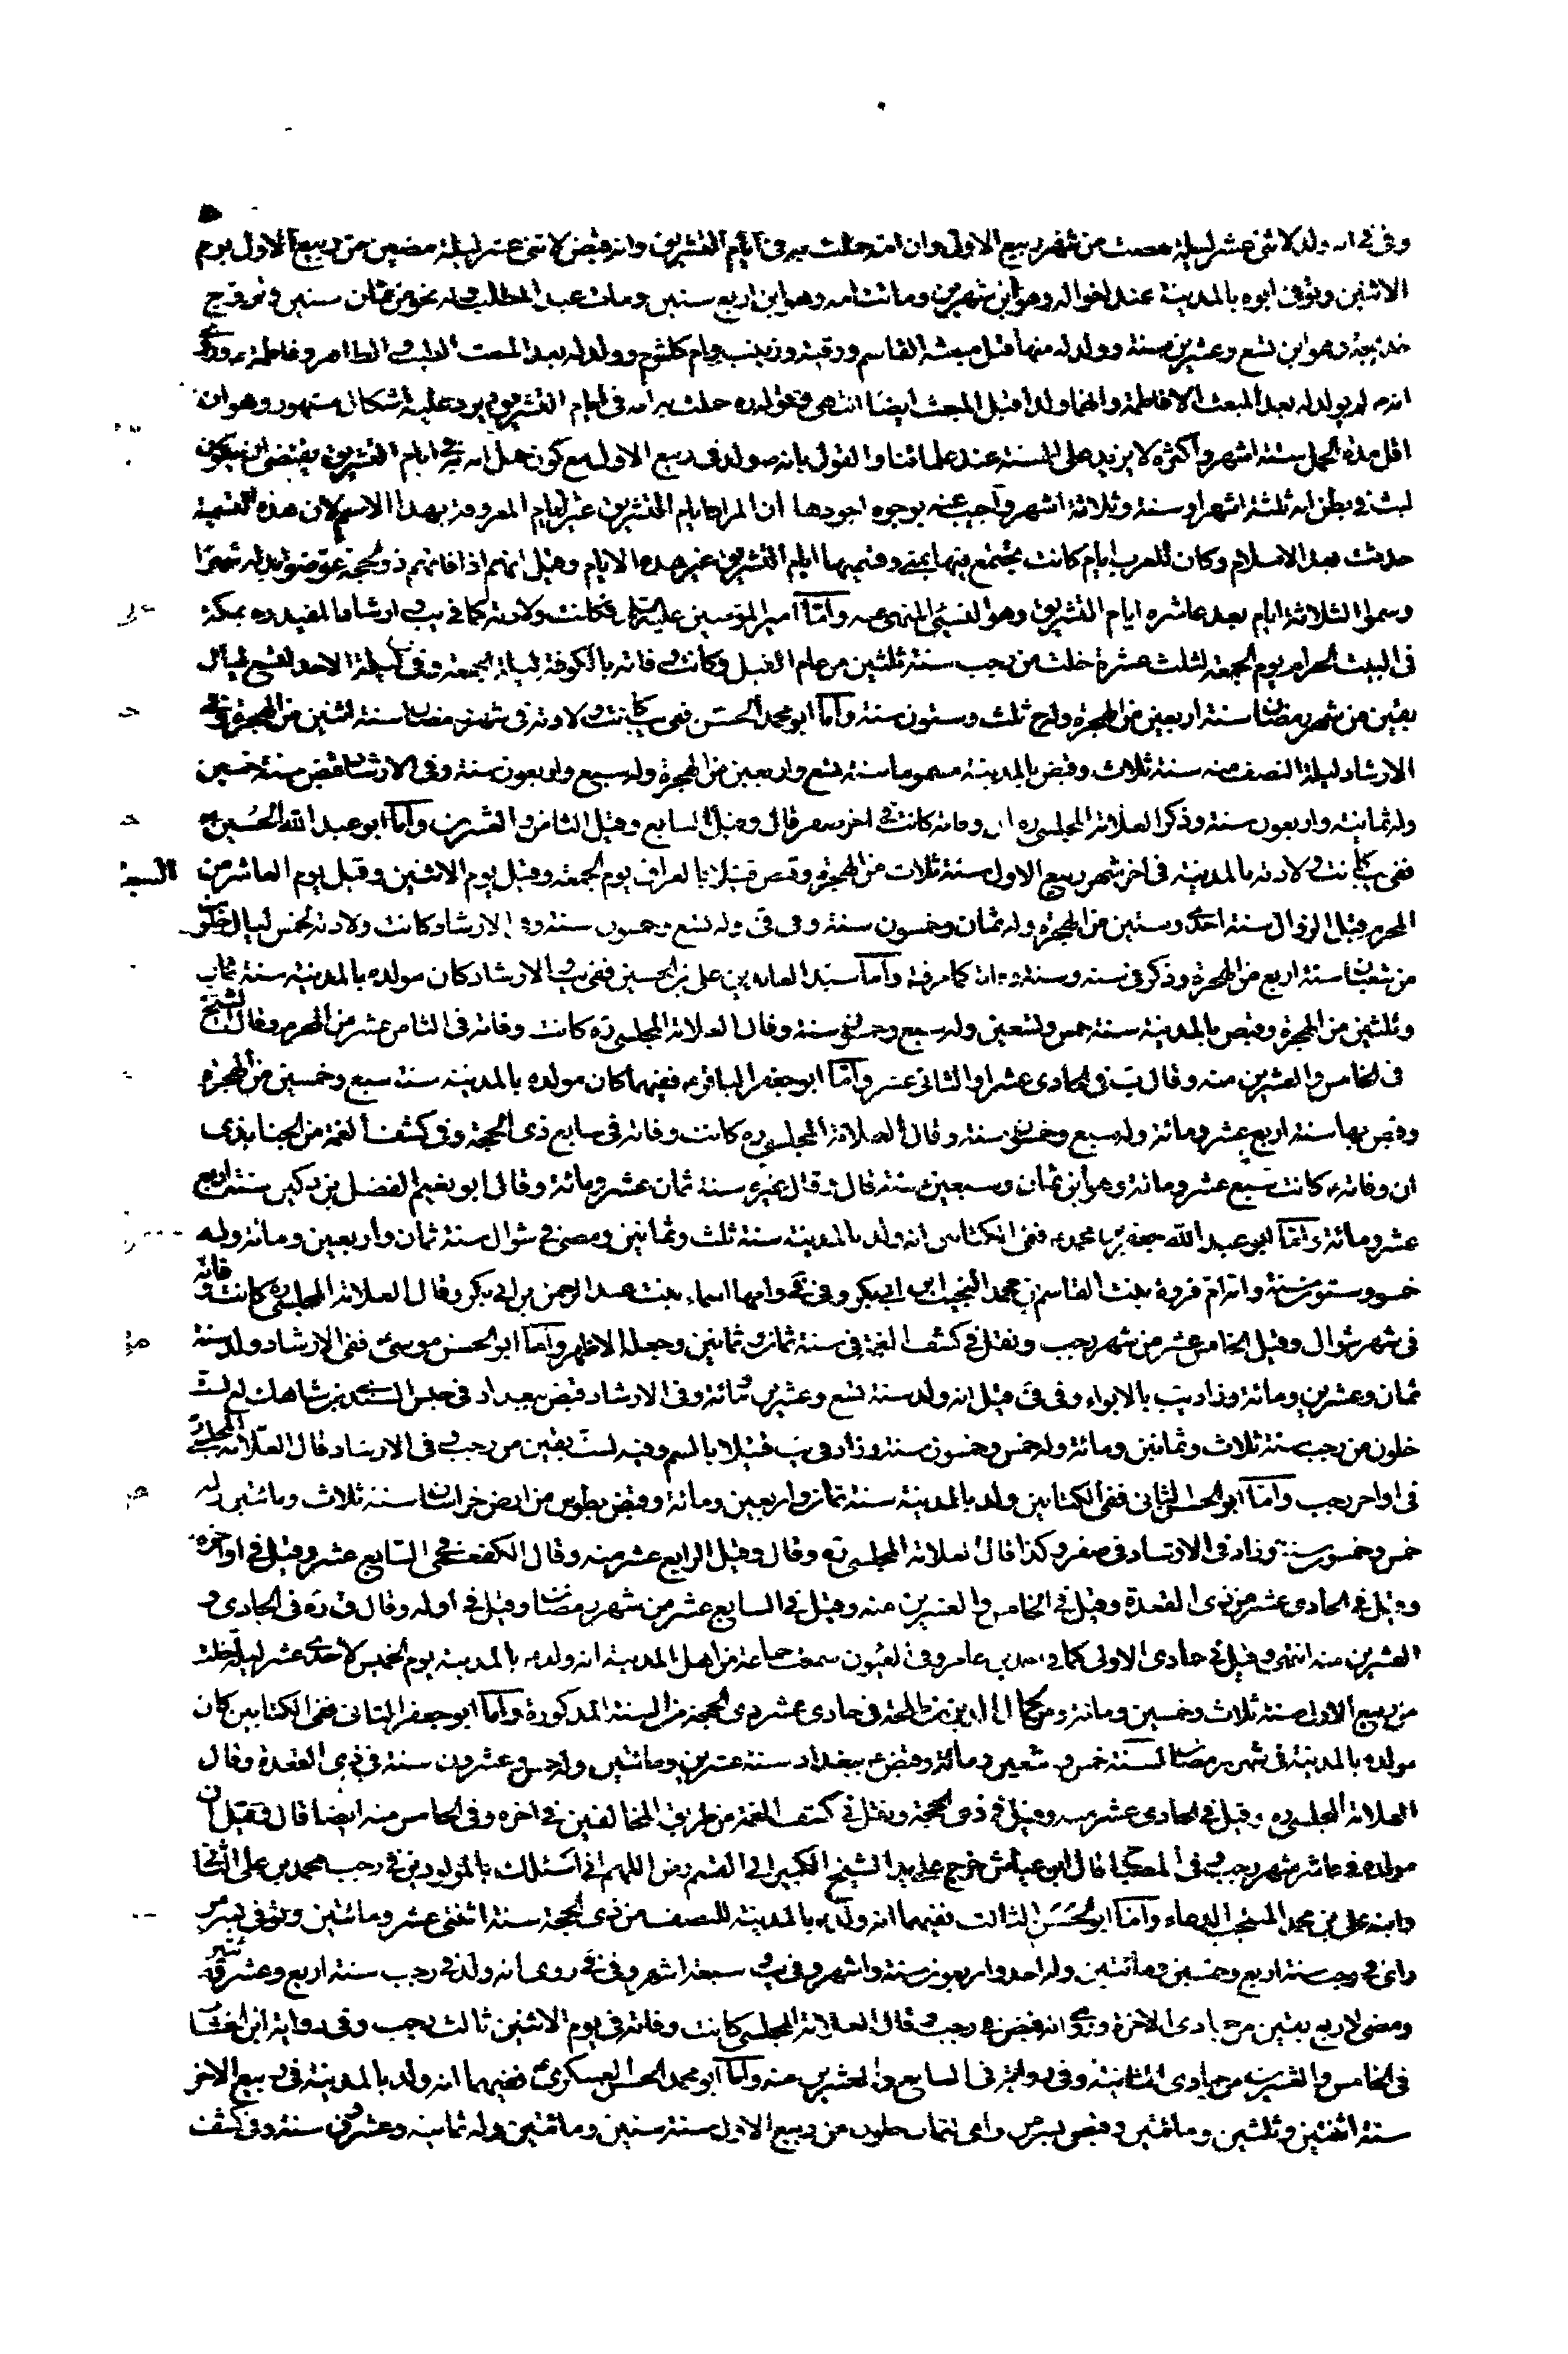 وفى فى انه ولد لاثنى عشر ليلة مضت من شهر ربيع الاول وان امه حملت به فى ايام التشريق وانه قبض لاثنى عشر ليلة مضين من ربيع الاول يوم
الاثنين وتوفى ابوه بالمدينة عند اخواله وهو ابن شهرين وماتت امه وهو ابن اربع سنين ومات عبد المطلب وله نحو من ثمان سنين وتزوج
خديجة وهو ابن بضع وعشرين سنة وولد له منها قبل مبعثه القاسم ورقية وزينب وام كلثوم وولد له بعد المبعث الطيب والطاهر وفاطمة ع وروى
انه لم يولد له بعد المبعث الا فاطمة وانهما ولدا قبل المبعث ايضا انتهى وقوله ره حملت به امه فى ايام التشريق يرد عليه اشكال مشهور وهو ان
اقل مدة الحمل ستة اشهر واكثره لا يزيد على السنة عند علمائنا والقول بانه ص ولد فى ربيع الاول مع كون حمل امه به فى ايام التشريق يقتضى ان يكون
لبث فى بطن امه ثلثة اشهر او سنة وثلاثة اشهر واجيب عنه بوجوه اجودها ان المراد بايام التشريق غير الايام المعروفة بهذا الاسم لان هذه التسمية
حدثت بعد الاسلام وكان للعرب ايام كانت تجتمع فيها بمنى وتسميها ايام التشريق غير هذه الايام وقيل انهم اذا فاتهم ذو الحجة عوضوا بدله شهرا
وسموا الثلاثة ايام بعد عاشره ايام التشريق وهو النسيئ المنهى عنه واما امير المؤمنين عليه السلام فكانت ولادته كما فى يب وارشاد المفيد ره بمكة
فى البيت الحرام يوم الجمعة لثلث عشرة خلت من رجب سنة ثلثين من عام الفيل وكانت وفاته بالكوفة ليلة الجمعة وفى ليلة الاحد لتسع ليال
بقين من شهر رمضان سنة اربعين من الهجرة وله ح ثلث وستون سنة واما ابو محمد الحسن ففى يب كانت ولادته فى شهر رمضان سنة اثنين من الهجرة وفى
الارشاد ليلة النصف منه سنة ثلاث وقبض بالمدينة مسموما سنة تسع واربعين من الهجرة وله سبع واربعون سنة وفى الارشاد قبض سنة خمسين
وله ثمانية واربعون سنة وذكر العلامة المجلسى ره ان وفاته كانت فى اخر صفر قال وقيل السابع وقيل الثامن والعشرين واما ابو عبد الله الحسين ع
ففى يب كانت ولادته بالمدينة فى اخر شهر ربيع الاول سنة ثلاث من الهجرة وقبض قتيلا بالعراق يوم الجمعة وقيل يوم الاثنين وقيل يوم العاشر من
المحرم قبل الزوال سنة احدى وستين من الهجرة وله ثمان وخمسون سنة وفى فى وله تسع وخمسون سنة وفى الارشاد كانت ولادته لخمس ليال خلون
من شعبان سنة اربع من الهجرة وذكر فى سنه وسنة وفاته كما مر فى واما سيد العابدين على بن الحسين ففى يب والارشاد كان مولده بالمدينة سنة ثمان
وثلثين من الهجرة وقبض بالمدينة سنة خمس وتسعين وله سبع وخمسون سنة وقال العلامة المجلسى ره كانت وفاته فى الثامن عشر من المحرم وقال الشيخ
فى الخامس والعشرين منه وقال ب فى الحادى عشر او الثانى عشر واما ابو جعفر الباقر ع ففيهما كان مولده بالمدينة سنة سبع وخمسين من الهجرة
وقبض بها سنة اربع عشر ومائة وله سبع وخمسون سنة وقال العلامة المجلسى ره كانت وفاته فى سابع ذى الحجة وفى كشف الغمة من الجنابذى
ان وفاته ع كانت سبع عشر ومائة وهو ابن ثمان وسبعين سنة قال وقال غيره سنة ثمان عشر ومائة وقال ابو نعيم الفضل بن دكين سنة اربع
عشر ومائة واما ابو عبد الله جعفر بن محمد ع ففى الكتابين انه ولد بالمدينة سنة ثلث وثمانين ومضى فى شوال سنة ثمان واربعين ومائة وله
خمس وستون سنة وامه ام فروة بنت القاسم بن محمد النجيب ابن ابى بكر وفى فى وامها اسماء بنت عبد الرحمن بن ابى بكر وقال العلامة المجلسى ره كانت وفاته
فى شهر شوال وقيل الخامس عشر من شهر رجب ونقل فى كشف الغمة فى سنة ثمان وثمانين وجعله الاظهر واما ابو الحسن موسى ع ففى الارشاد ولد سنة
ثمان وعشرين ومائة وزاد يب بالابواء وفى فى قيل انه ولد سنة تسع وعشرين ومائة وفى الارشاد قبض ببغداد فى حبس السندى بن شاهك لع لست
خلون من رجب سنة ثلاث وثمانين ومائة وله خمس وخمسون سنة وزاد فى يب قتيلا بالسم وفيه لست بقين من رجب وفى الارشاد قال العلامة المجلسى
فى اواخر رجب واما ابو الحسن الثانى ففى الكتابين ولد بالمدينة سنة ثمان واربعين ومائة وقبض بطوس من ارض خراسان سنة ثلاث ومائتين وله
خمس وخمسون سنة وزاد فى الارشاد فى صفر وكذا قال العلامة المجلسى ره وقال وقيل الرابع عشر منه وقال الكفعمى فى السابع عشر وقيل فى اواخره
وقيل فى الحادى عشر من ذى القعدة وقيل فى الخامس والعشرين منه وقيل فى السابع عشر من شهر رمضان وقيل فى اوله وقال ق ره فى الحادى و
العشرين منه انتهى وقيل فى جمادى الاولى كما فى وفى العيون سمعت جماعة من اهل المدينة انه ولد ع بالمدينة يوم الخميس لاحدى عشر ليلة خلت
من ربيع الاول سنة ثلاث وخمسين ومائة وعن كمال الدين بن طلحة فى حادى عشر ذى الحجة من السنة المذكورة واما ابو جعفر الثانى ففى الكتابين كان
مولده بالمدينة فى شهر رمضان لسنة خمس وتسعين ومائة وقبض ع ببغداد سنة عشرين ومائتين وله خمس وعشرون سنة فى ذى القعدة وقال
العلامة المجلسى ره وقيل فى الحادى عشر منه وقيل فى ذى الحجة ونقل فى كشف الغمة من طريق المخالفين فى اخره وفى الخامس منه ايضا قال ق قيل ان
مولده فى عاشر شهر رجب وفى المصباح قال ابن عياش خرج على يد الشيخ الكبير ابى القسم رض اللهم انى اسئلك بالمولودين فى رجب محمد بن على الثانى
وابنه على بن محمد المنتجب الدعاء واما ابو الحسن الثالث ففيهما انه ولد ع بالمدينة للنصف من ذى الحجة سنة اثنتى عشر ومائتين وتوفى بسر من
راى فى رجب سنة اربع وخمسين ومائتين وله احد واربعون سنة واشهر وفى يب سبعة اشهر وفى فى روى انه ولد فى رجب سنة اربع وعشر ومائتين
ومضى لاربع بقين من جمادى الاخرة وروى انه قبض فى رجب وقال العلامة المجلسى كانت وفاته فى يوم الاثنين ثالث رجب وفى رواية ابن الخشاب
فى الخامس والعشرين من جمادى الثانية وفى رواية فى السابع والعشرين منه واما ابو محمد الحسن العسكرى ع ففيهما انه ولد بالمدينة فى ربيع الاخر
سنة اثنتين وثلثين ومائتين وقبض بسر من راى لثمان خلون من ربيع الاول سنة ستين ومائتين وله ثمانية وعشرون سنة وفى كشف